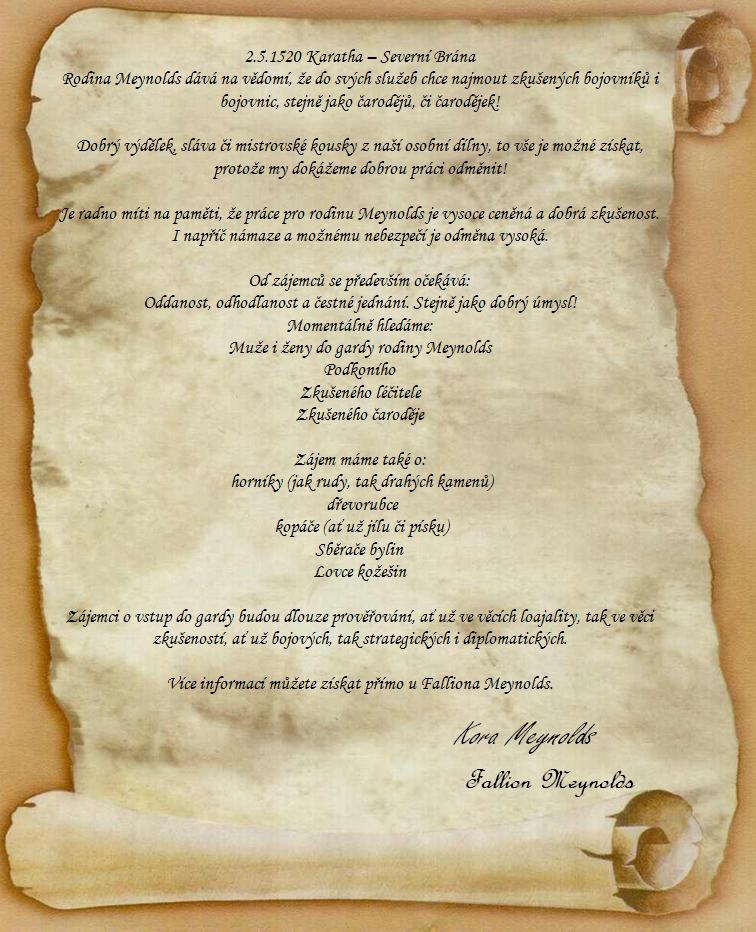 2.5.1520 Karatha – Severní Brána
Rodina Meynolds dává na vědomí, že do svých služeb chce najmout zkušených bojovníků i
bojovnic, stejně jako čarodějů, či čarodějek!
Dobrý výdělek, sláva či mistrovské kousky z naší osobní dílny, to vše je možné získat,
protože my dokážeme dobrou práci odměnit!
Je radno míti na paměti, že práce pro rodinu Meynolds je vysoce ceněná a dobrá zkušenost.
I napříč námaze a možnému nebezpečí je odměna vysoká.
Od zájemců se především očekává:
Oddanost, odhodlanost a čestné jednání. Stejně jako dobrý úmysl!
Momentálně hledáme:
Muže i ženy do gardy rodiny Meynolds
Podkoního
Zkušeného léčitele
Zkušeného čaroděje
Zájem máme také o:
horníky (jak rudy, tak drahých kamenů)
dřevorubce
kopáče (ať už jílu či písku)
Sběrače bylin
Lovce kožešin
Zájemci o vstup do gardy budou dlouze prověřování, ať už ve věcích loajality, tak ve věci
zkušeností, ať už bojových, tak strategických i diplomatických.
Více informací můžete získat přímo u Falliona Meynolds.
Kora Meynolds
Fallion Meynolds